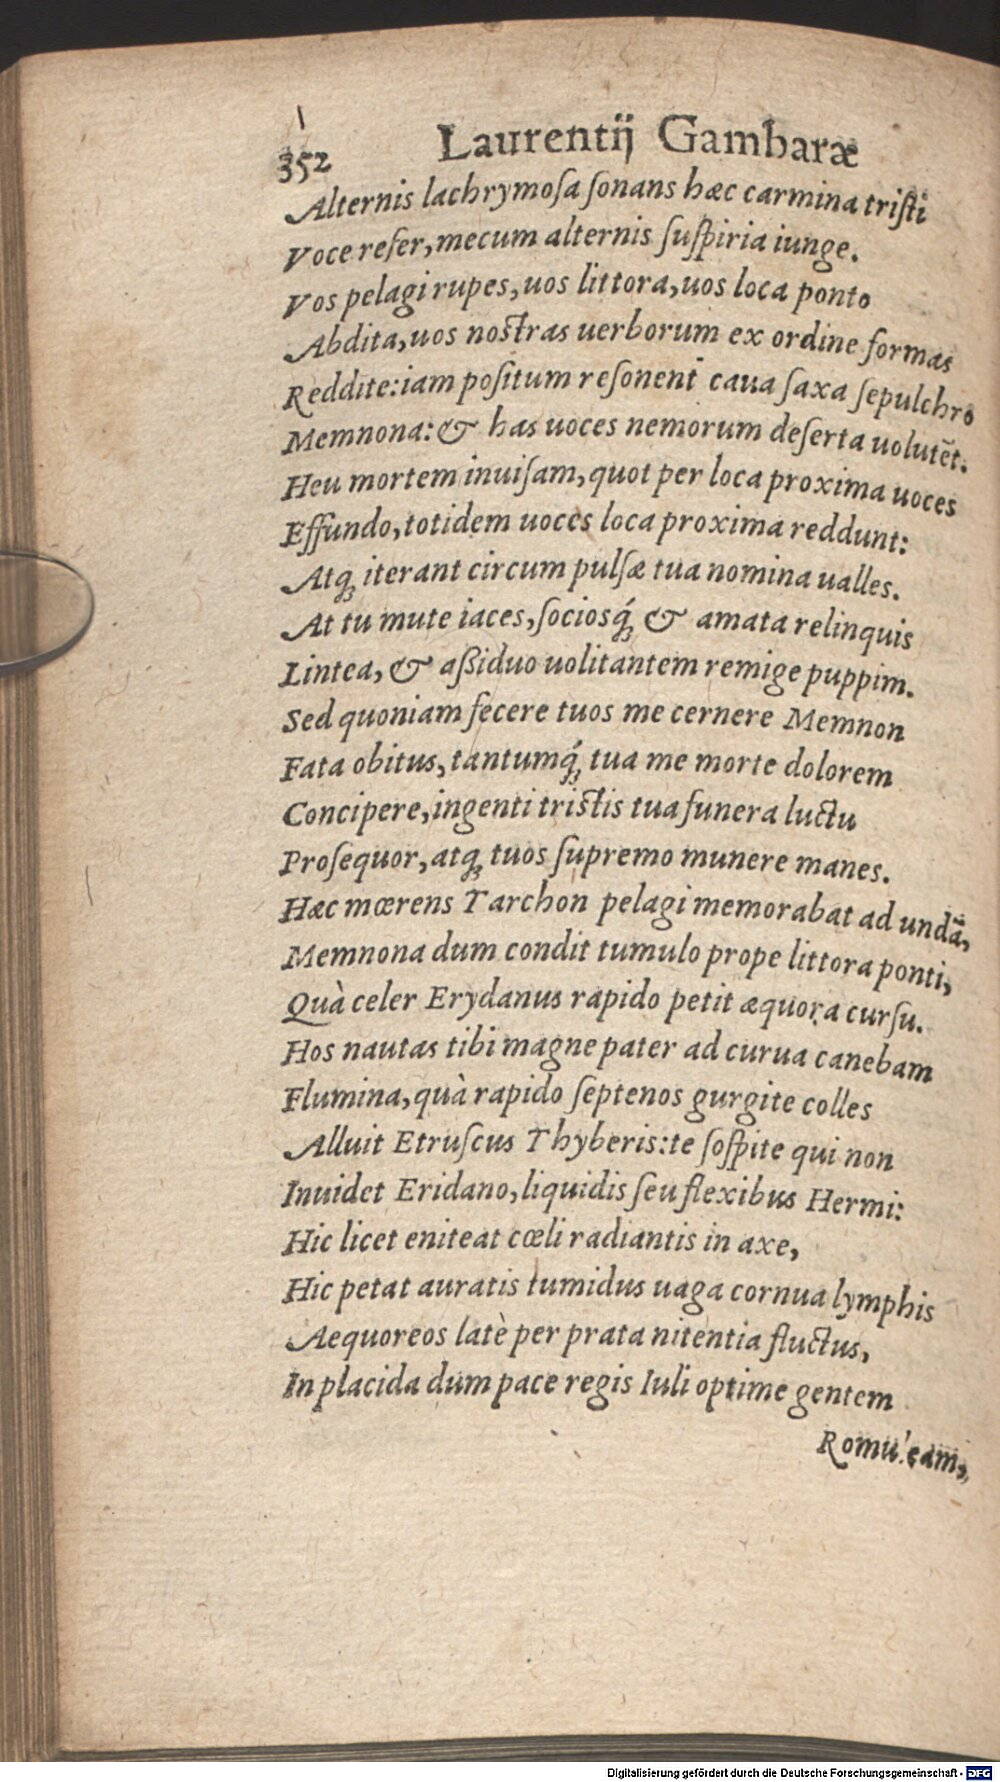 352 Laurentij Gambaræ
Alternis lachrymoſa ſonans hæc carmina triſti
Voce refer, mecum alternis ſuſpiria iunge.
Vos pelagi rupes, uos littora, uos loca ponto
Abdita, uos noſtras uerborum ex ordine formas
Reddite: iam poſitum reſonent caua ſaxa ſepulchro
Memnona: & has uoces nemorum deſerta uolutēt.
Heu mortem inuiſam, quot per loca proxima uoces
Effundo, totidem uoces loca proxima reddunt:
Atq; iterant circum pulſæ tua nomina ualles.
At tu mute iaces, ſociosq́; & amata relinquis
Lintea, & aßiduo uolitantem remige puppim.
Sed quoniam fecere tuos me cernere Memnon
Fata obitus, tantumq́; tua me morte dolorem
Concipere, ingenti triſtis tua funera luctu
Proſequor, atq; tuos ſupremo munere manes.
Hæc mœrens Tarchon pelagi memorabat ad undā,
Memnona dum condit tumulo prope littora ponti,
Quà celer Erydanus rapido petit æquora curſu.
Hos nautas tibi magne pater ad curua canebam
Flumina, quà rapido ſeptenos gurgite colles
Alluit Etruſcus Thyberis: te ſoſpite qui non
Inuidet Eridano, liquidis ſeu flexibus Hermi:
Hic licet eniteat cœli radiantis in axe,
Hic petat auratis tumidus uaga cornua lymphis
Aequoreos latè per prata nitentia fluctus,
In placida dum pace regis Iuli optime gentem
Romuleam,
Digitalisierung gefördert durch die Deutsche Forschungsgemeinschaft - DFG